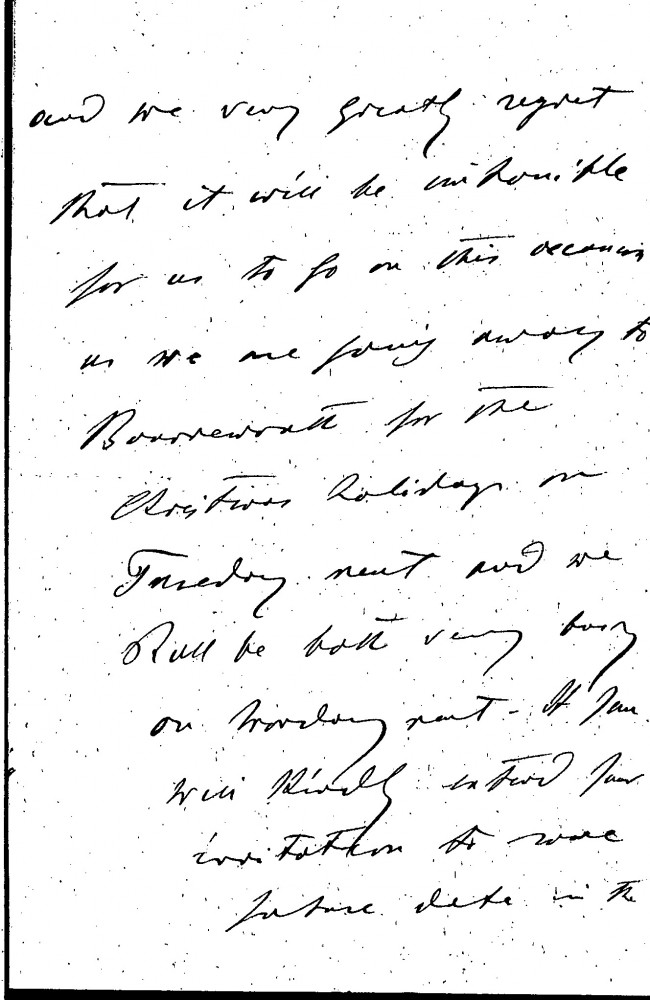 and we very greatly regret
that it will be impossible
for us to go on this occasion
as we are going away to
Bournemouth for the
Christmas holidays on
Tuesday next and we
shall be both very busy
on Monday next - If you
will kindly extend your
invitation to some
future date in the